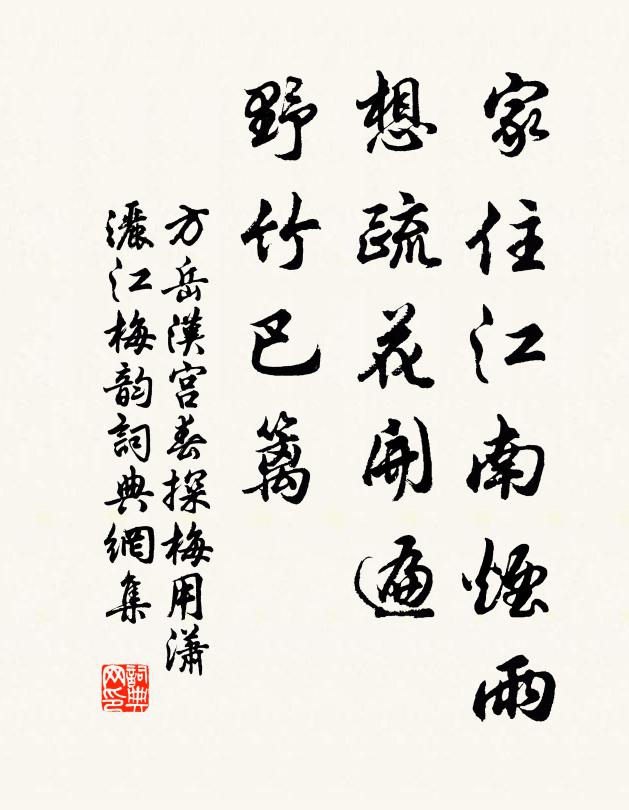 家住江南煙雨
想疏花開遍
野竹巴籬
方岳漢宮春探梅用瀟
灑江梅韵詞典網集
詞典網印